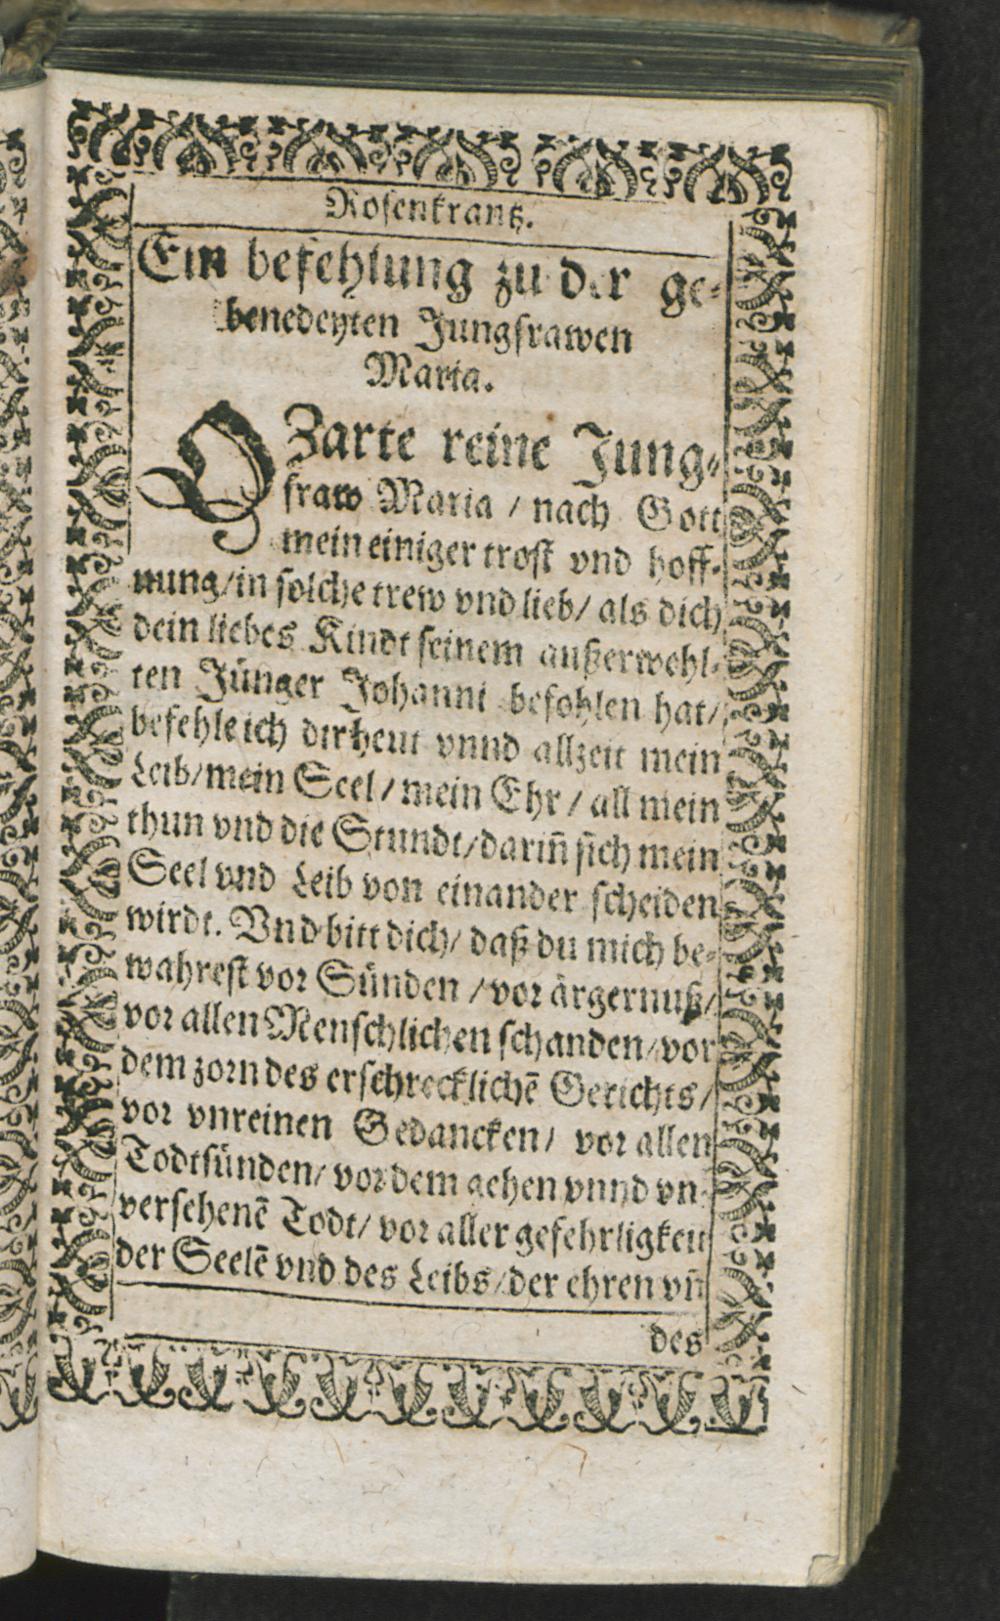 Rosenkrantz.
Ein befehlung zu der ge-
benedeyten Jungfrawen
Maria.
O Zarte reine Jung-
fraw Maria / nach Gott
mein einiger trost vnd hoff-
nung/ in solche trew vnd lieb/ als dich
dein liebes Kindt seinem außerwehl-
ten Jünger Johanni befohlen hat/
befehle ich dir heut vnnd allzeit mein
Leib/ mein Seel / mein Ehr / all mein
thun vnd die Stundt/ dariñ sich mein
Seel vnd Leib von einander scheiden
wirdt. Vnd bitt dich/ daß du mich be-
wahrest vor Sünden / vor ärgernuß/
vor allen Menschlichen schanden/ vor
dem zorn des erschrecklichē Gerichts/
vor vnreinen Gedancken/ vor allen
Todtsünden/ vor dem gehen vnnd vn-
versehenē Todt/ vor aller gefehrligkeit
der Seelē vnd des Leibs/ der ehren vñ
des